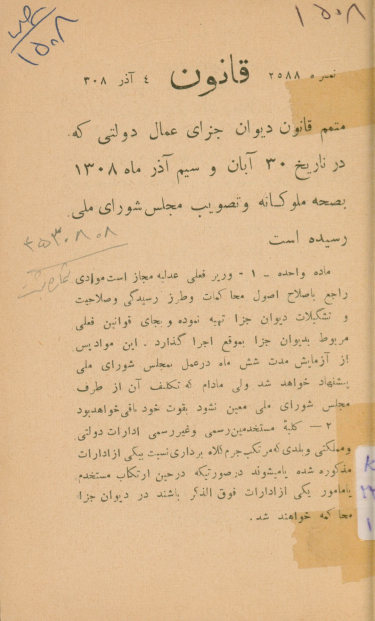 ۱۵۰۸
۱۵۰۸
نمره ۲۵۸۸ قانون ٤ آذر ۳۰۸
متمم قانون دیوان جزای عمال دولتی که
در تاریخ ۳۰ آبان و سیم آذر ماه ۱۳۰۸
بصحه ملوکانه وتصویب مجلس شورای ملی
رسیده است
ماده واحده - ۱ - وزیر فعلی عدلیه مجاز است موادی
راجع باصلاح اصول محاکمات وطرز رسیدگی وصلاحیت
و تشکیلات دیوان جزا تهیه نموده و بجای قوانین فعلی
مربوط بدیوان جزا بموقع اجرا گذارد . این موادپس
از آزمایش مدت شش ماه درعمل بمجلس شورای ملی
پیشنهاد خواهد شد ولی مادام که تکلیف آن از طرف
مجلس شورای ملی معین نشود بقوت خود باقی‌خواهدبود
۲ — کلیهٔ مستخدمین‌رسمی وغیررسمی ادارات دولتی
ومملکتی وبلدی‌که‌مرتکب‌جرم‌کلاه برداری‌نسبت‌بیکی ازادارات
مذکوره شده یامیشوند درصورتیکه درحین ارتکاب مستخدم
یامامور یکی ازادارات فوق الذکر باشند در دیوان جزا
محاکمه خواهند شد .